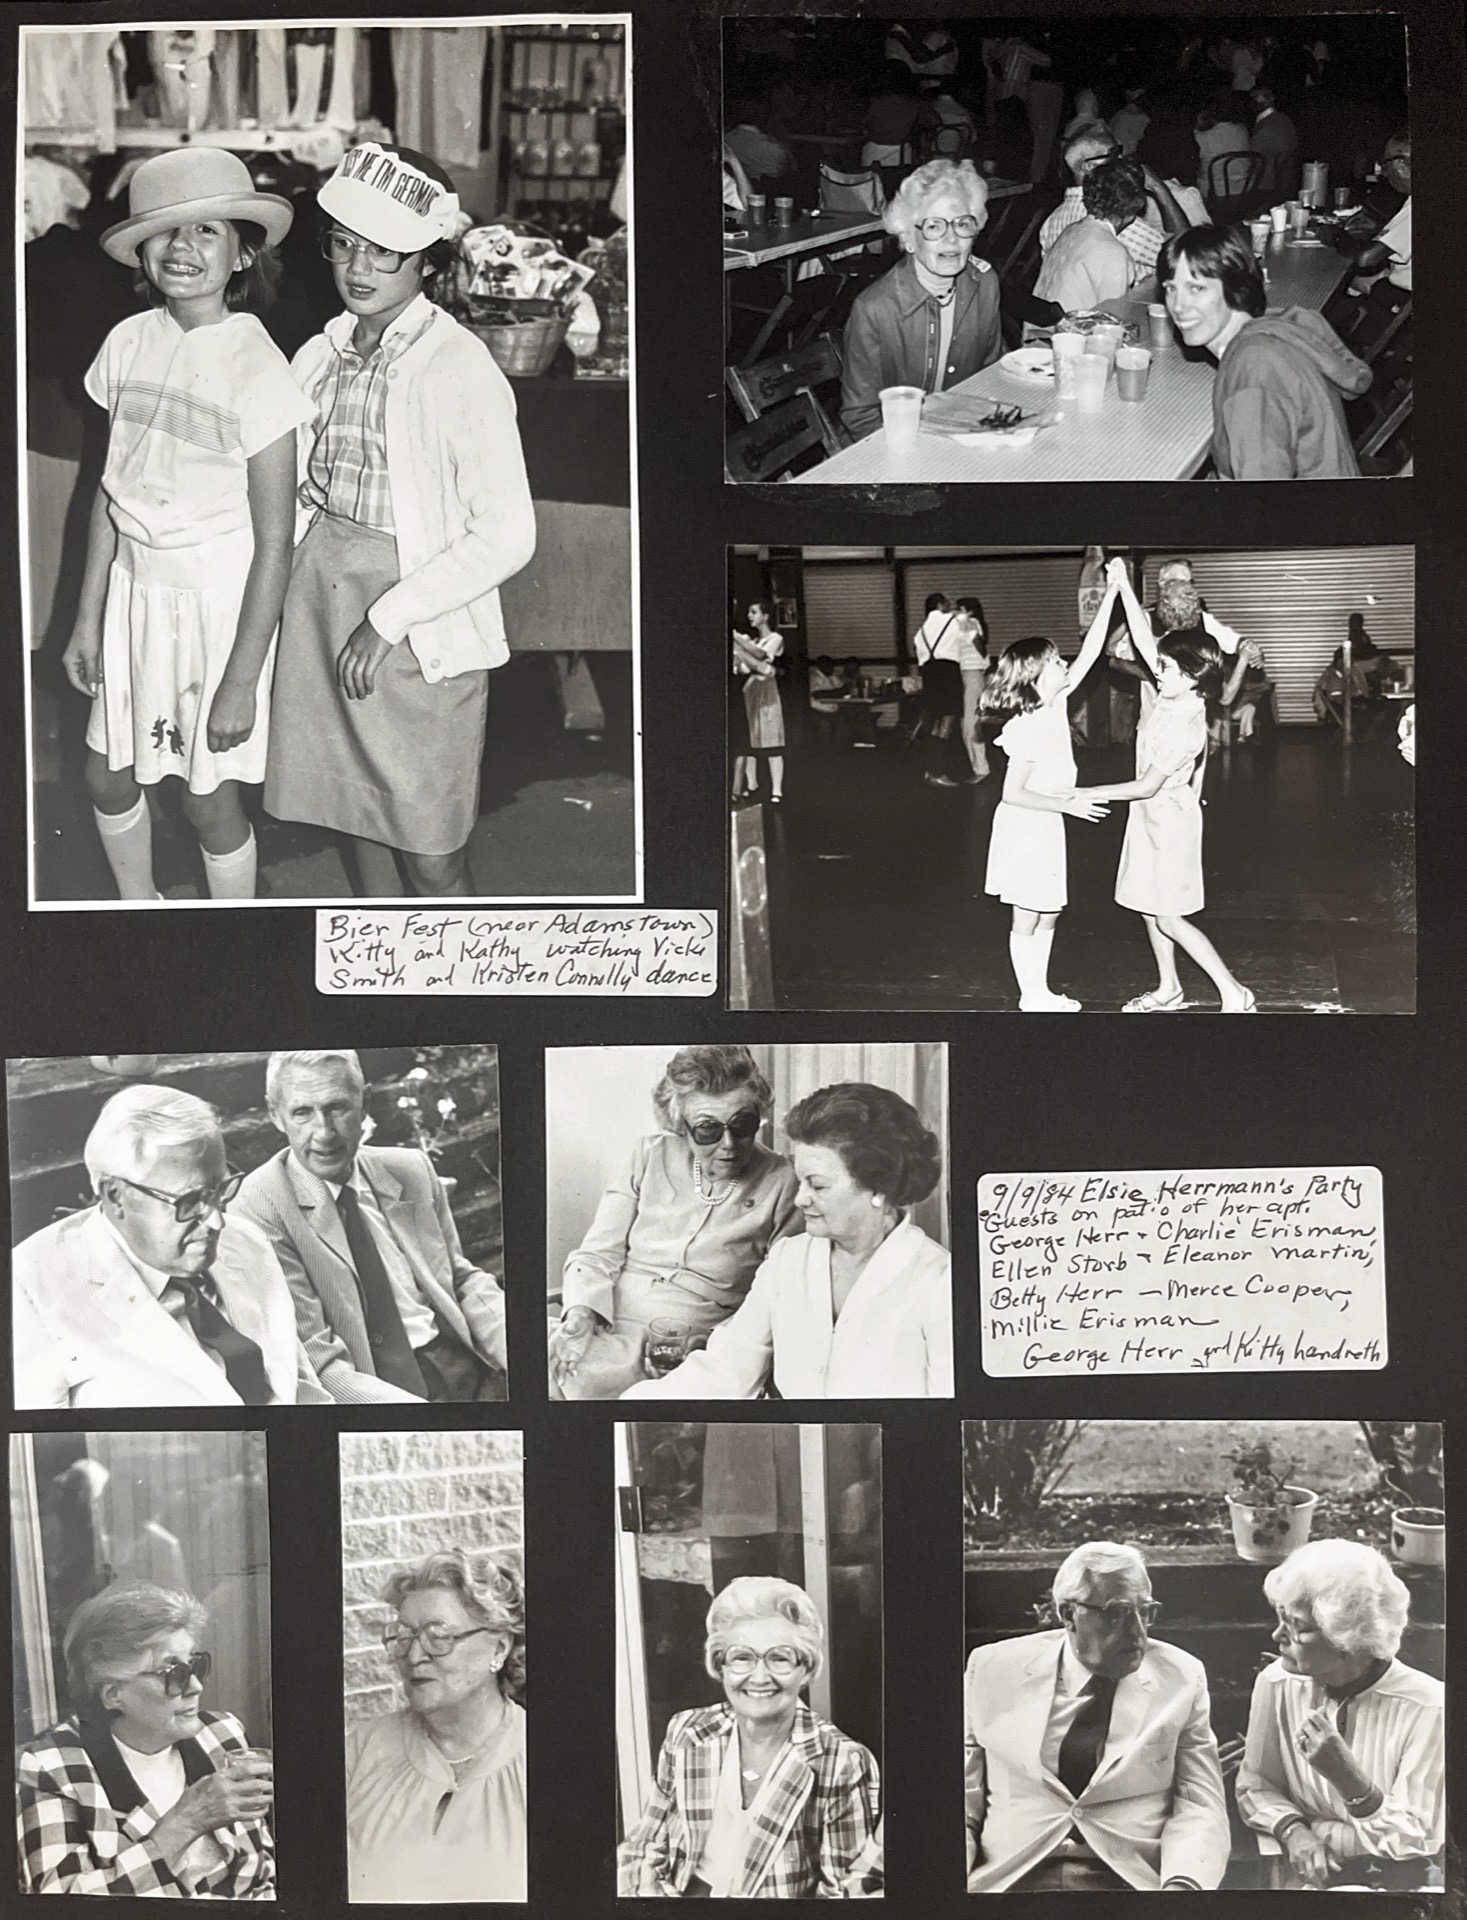 KISS ME I'M GERMAN
Bier Fest (near Adamstown)
Kitty and Kathy watching Vicki
Smith and Kristen Connolly dance
9/9/84 Elsie Herrmann's Party
Guests on patio of her apt.
George Herr & Charlie Erisman,
Ellen Storb & Eleanor Martin,
Betty Herr - Merce Cooper,
Millie Erisman
George Herr and Kitty Landreth